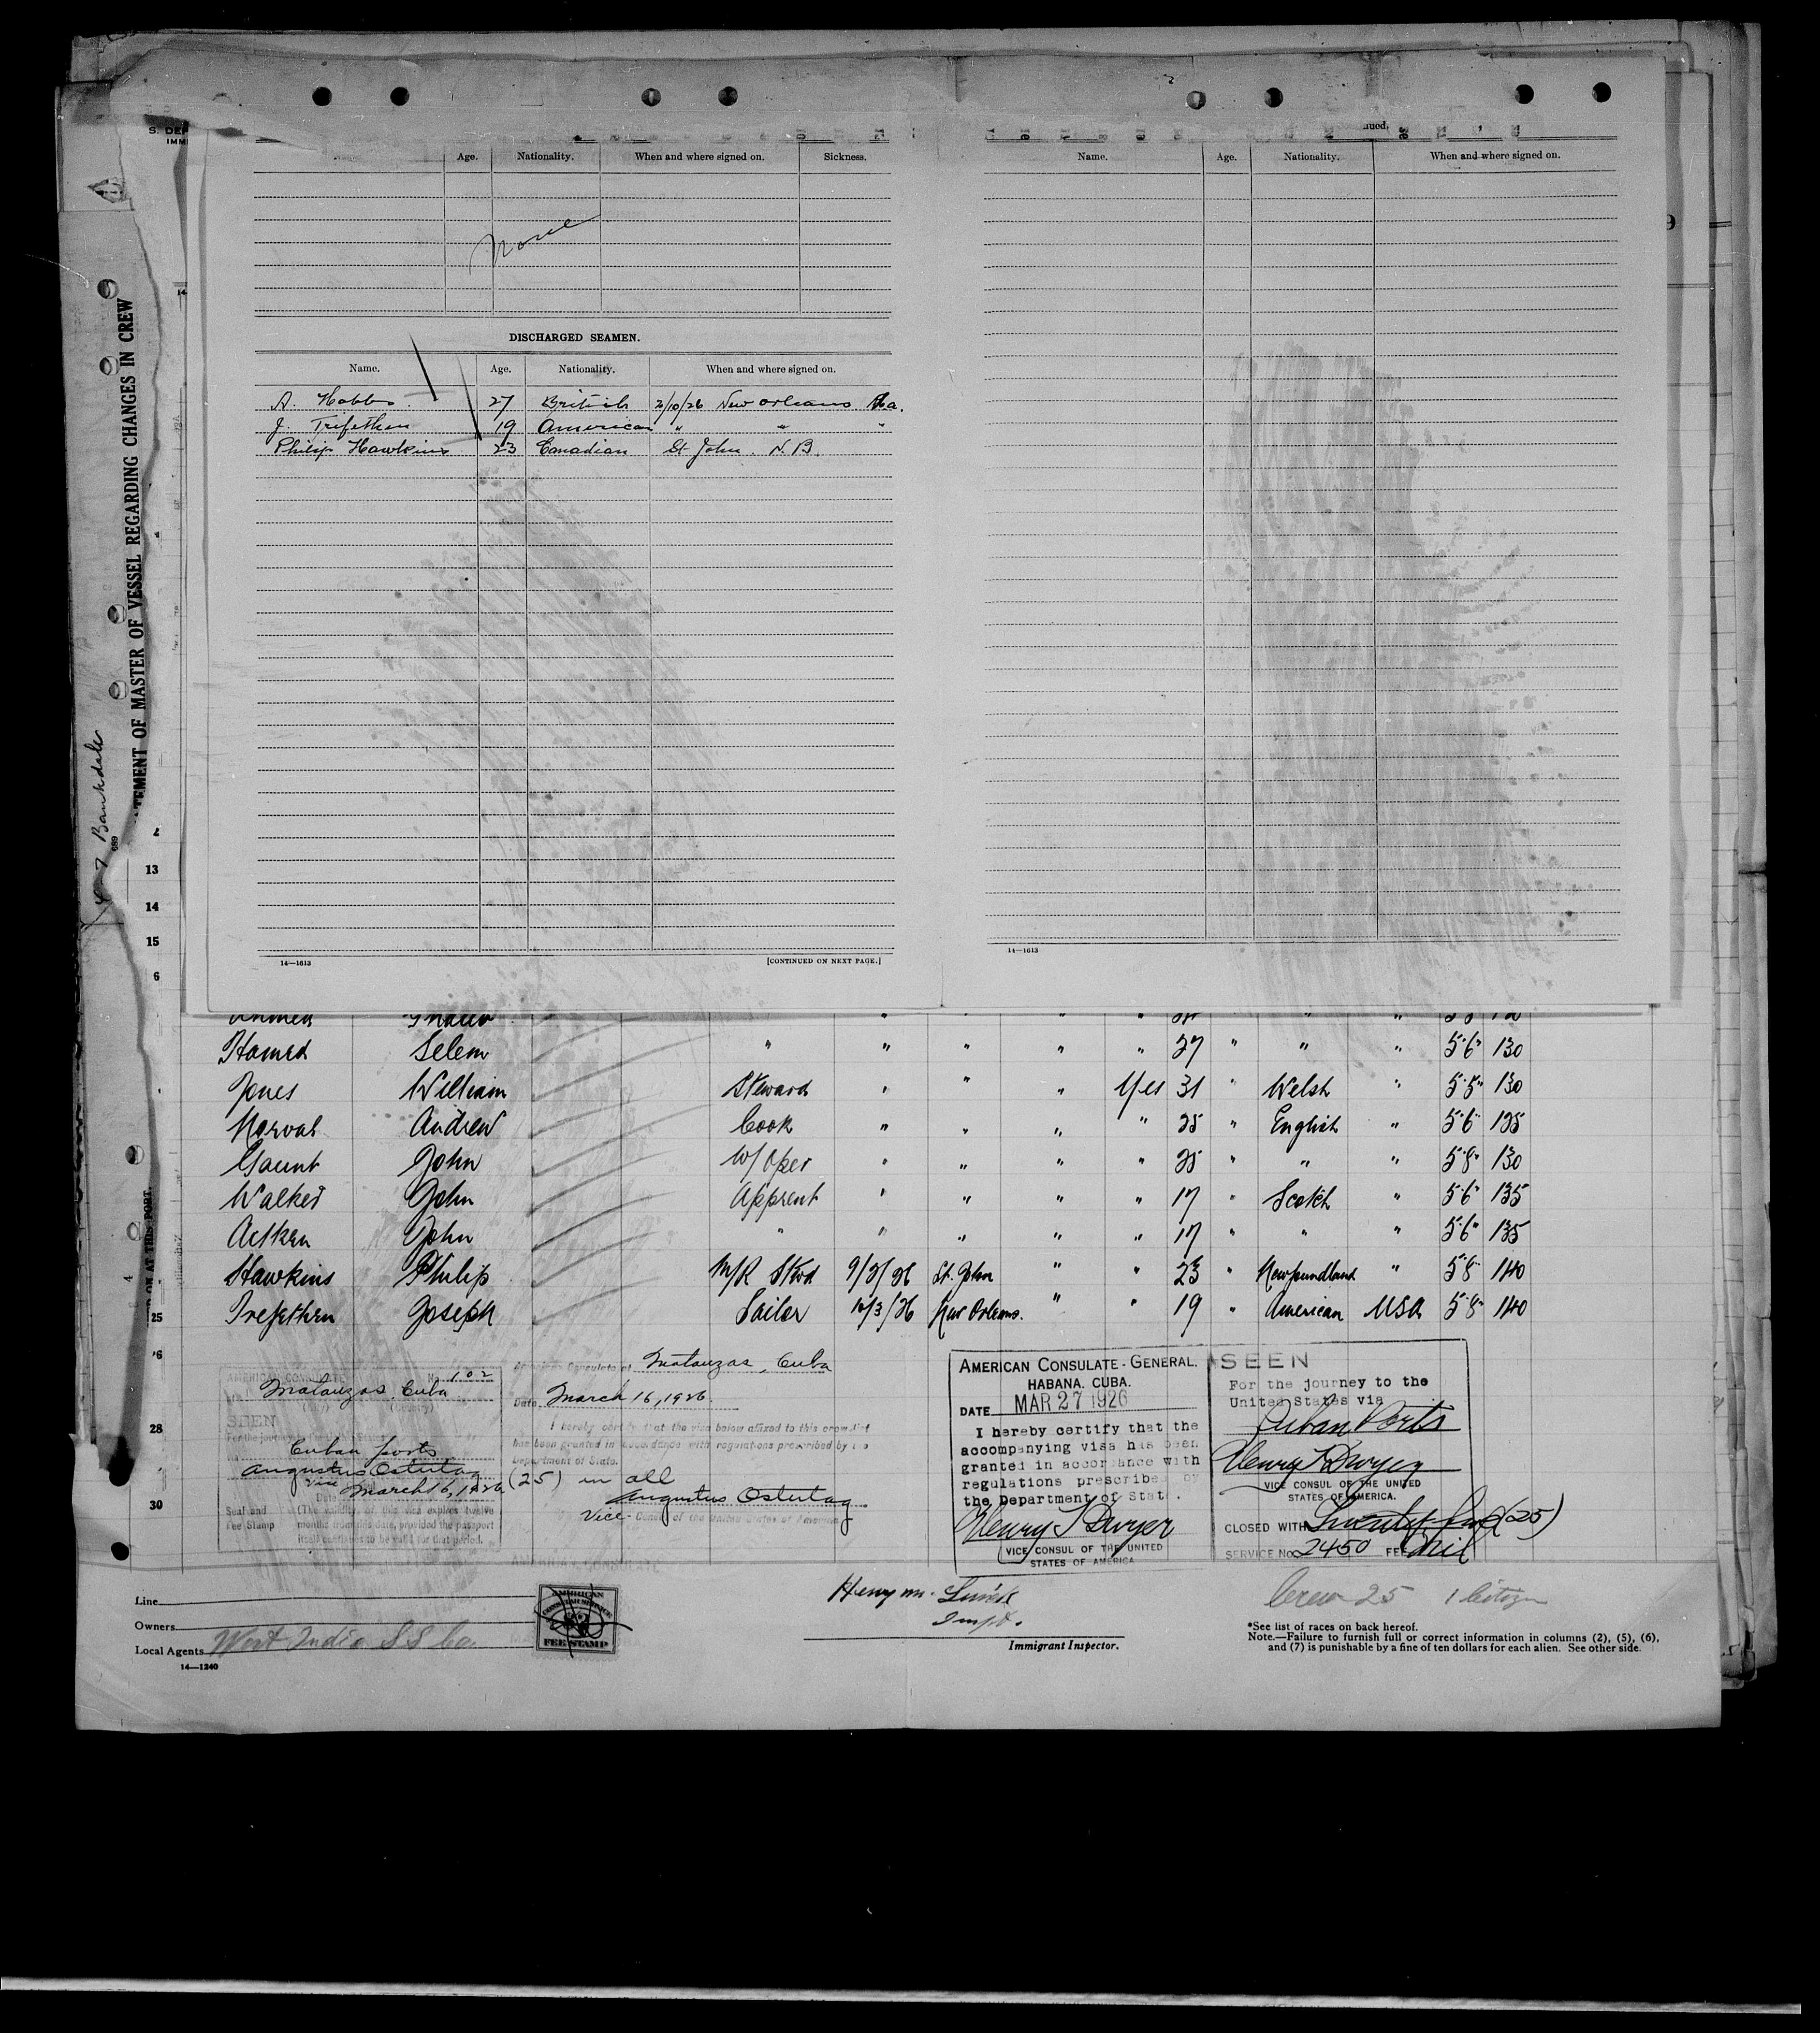 S. DEP
IMMI
nued.
Age. Nationality. When and where signed on. Sickness.
Name. Age. Nationality. When and where signed on.
None
DISCHARGED SEAMEN.
Name. Age. Nationality. When and where signed on.
A. Hobbs. 27 British 2/10/26 New Orleans La.
J. Trifethen 19 American " " "
Philip Hawkins 23 Canadian St John. N.B.
14—1613 [CONTINUED ON NEXT PAGE.]
14—1613
ATEMENT OF MASTER OF VESSEL REGARDING CHANGES IN CREW
Bankdale
689
13
14
15
6
Hamed Selem " " " " " 27 " " " 5'6" 130
Jones William Steward " " " Yes 31 " Welsh " 5'5" 130
Norval Andrew Cook " " " " 25 " English " 5'6" 135
Gaunt John W/Oper " " " " 25 " " " 5'8" 130
Walker John Apprent " " " " 17 " Scotch " 5'6" 135
Aitken John " " " " " 17 " " " 5'6" 135
Hawkins Philip M/R Stwd 9/2/26 St. John " " 23 " Newfoundland " 5'8" 140
25 Trefethen Joseph Sailor 10/3/26 New Orleans. " " 19 " American USA 5'8" 140
AMERICAN CONSULATE No. 102
Matanzas, Cuba
SEEN
For the journey to the United States
Cuban ports
Augustus Ostertag
Vice
Date March 16, 1926
Seal and
Fee Stamp
(The validity of this visa expires twelve
months from this date, provided the passport
itself continues to be valid for that period.
American Consulate at Matanzas, Cuba
Date March 16, 1926.
I hereby certify that the visa below affixed to this crew list
has been granted in accordance with regulations prescribed by the
Department of State.
(25) in all
Augustus Ostertag
Vice-Consul of the United States of America
AMERICAN CONSULATE-GENERAL.
HABANA. CUBA.
DATE MAR 27 1926
I hereby certify that the
accompanying visa has been
granted in accordance with
regulations prescribed by
the Department of State.
Henry T Dwyer
VICE CONSUL OF THE UNITED
STATES OF AMERICA
SEEN
For the journey to the
United States via
Cuban Ports
Henry T Dwyer
VICE CONSUL OF THE UNITED
STATES OF AMERICA.
CLOSED WITH Twenty five (25)
SERVICE No. 2450 FEE Nil
28
30
Line
Owners
Local Agents West India S S Co.
14—1240
AMERICAN
CONSULAR SERVICE
FEE STAMP
Henry M.
Inspt.
Immigrant Inspector.
Crew 25 1 Citizen
*See list of races on back hereof.
Note.—Failure to furnish full or correct information in columns (2), (5), (6),
and (7) is punishable by a fine of ten dollars for each alien. See other side.